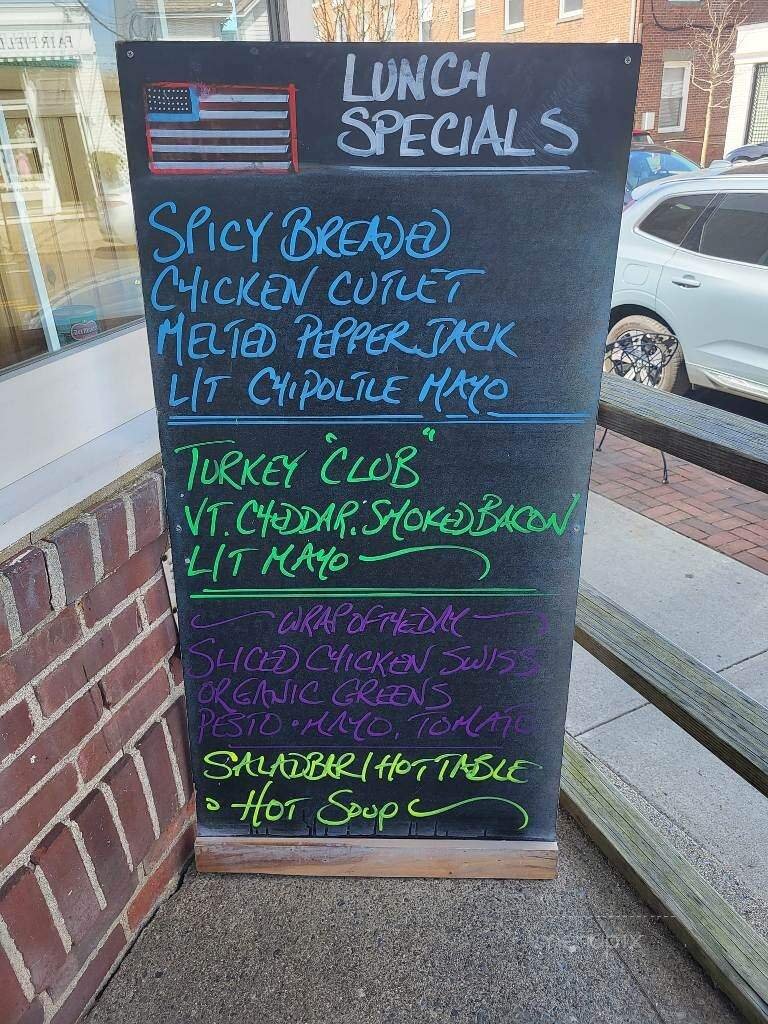 LUNCH
SPECIALS
SPICY BREADED
CHICKEN CUTLET
MELTED PEPPER JACK
L/T CHIPOLTLE MAYO
TURKEY "CLUB"
VT. CHEDDAR. SMOKED BACON
L/T MAYO
WRAP OF THE DAY
SLICED CHICKEN SWISS
ORGANIC GREENS
PESTO • MAYO, TOMATO
SALAD BAR / HOT TABLE
HOT SOUP